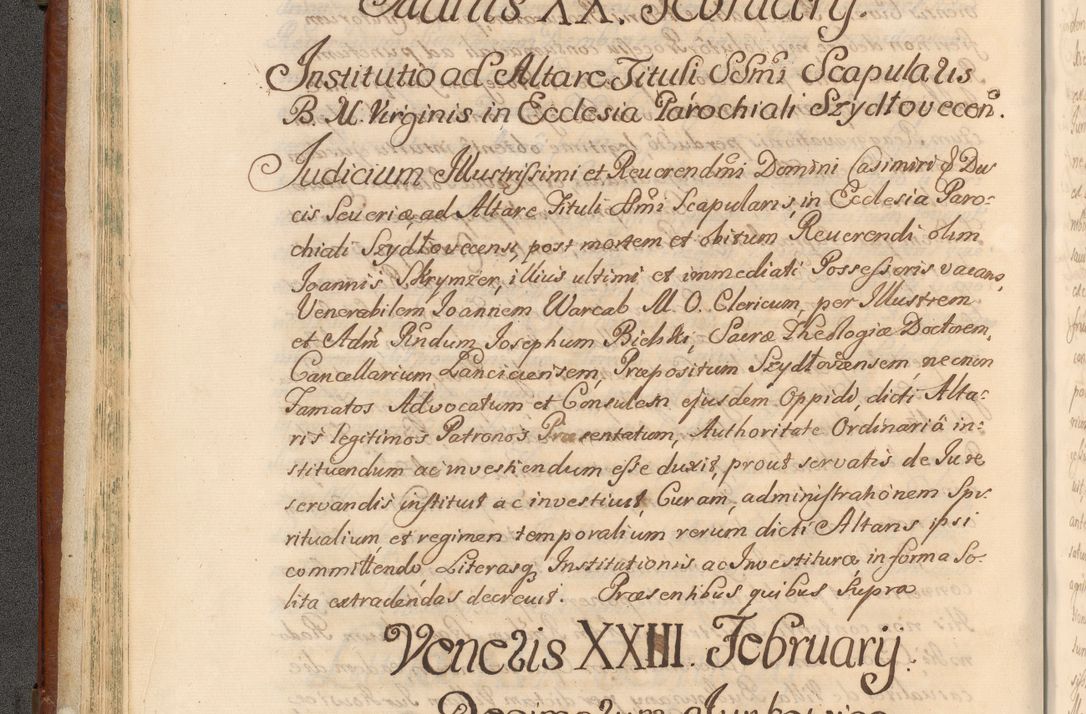 XX. February.
Institutio ad Altare Tituli SSmi Scapularis
B. M. Virginis in Ecclesia Parochiali Szydłovecen.
Judicium Illustrissimi et Reverendmi Domini Casimiri & Du
cis Severiæ, ad Altare Tituli SSmi Scapularis, in Ecclesia Paro-
chiali Szydłovecensi, post mortem et obitum Reverendi olim
Joannis Skrymzer, illius ultimi et immediati Possessoris vacans,
Venerabilem Joannem Warcab M. O. Clericum, per Illustrem
et Adm Rndum Josephum Bielski, Sacræ Theologiæ Doctorem,
Cancellarium Lanciciensem, Præpositum Szydłovensem necnon
Famatos Advocatum et Consulem ejusdem Oppidi, dicti Alta-
ris legitimos Patronos Præsentatum, Authoritate Ordinariâ in-
stituendum ac investiendum esse duxit, prout servatis de Jure
servandis instituit ac investivit, Curam, administrationem Spi-
ritualium, et regimen temporalium rerum dicti Altaris ipsi
committendo Literasq Institutionis ac Investituræ, in forma So-
lita extradendas decrevit. Præsentibus quibus Supra
Veneris XXIII. Februarij.